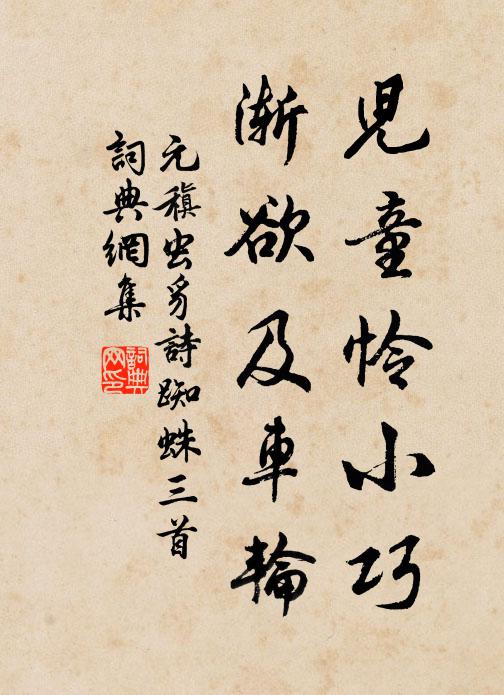 兒童怜小巧
漸欲及車輪
元稹虫豸詩蜘蛛三首
詞典網集
詞典网印